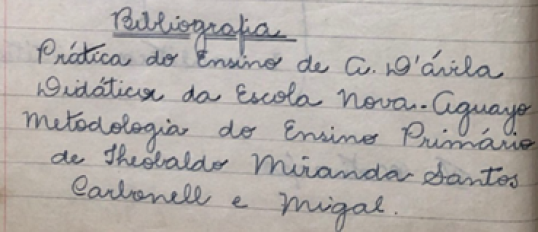 Bibliografia
Prática do Ensino de A. D'ávila
Didática da Escola Nova - Aguayo
Metodologia do Ensino Primário
de Theobaldo Miranda Santos
Carbonell e Migal.